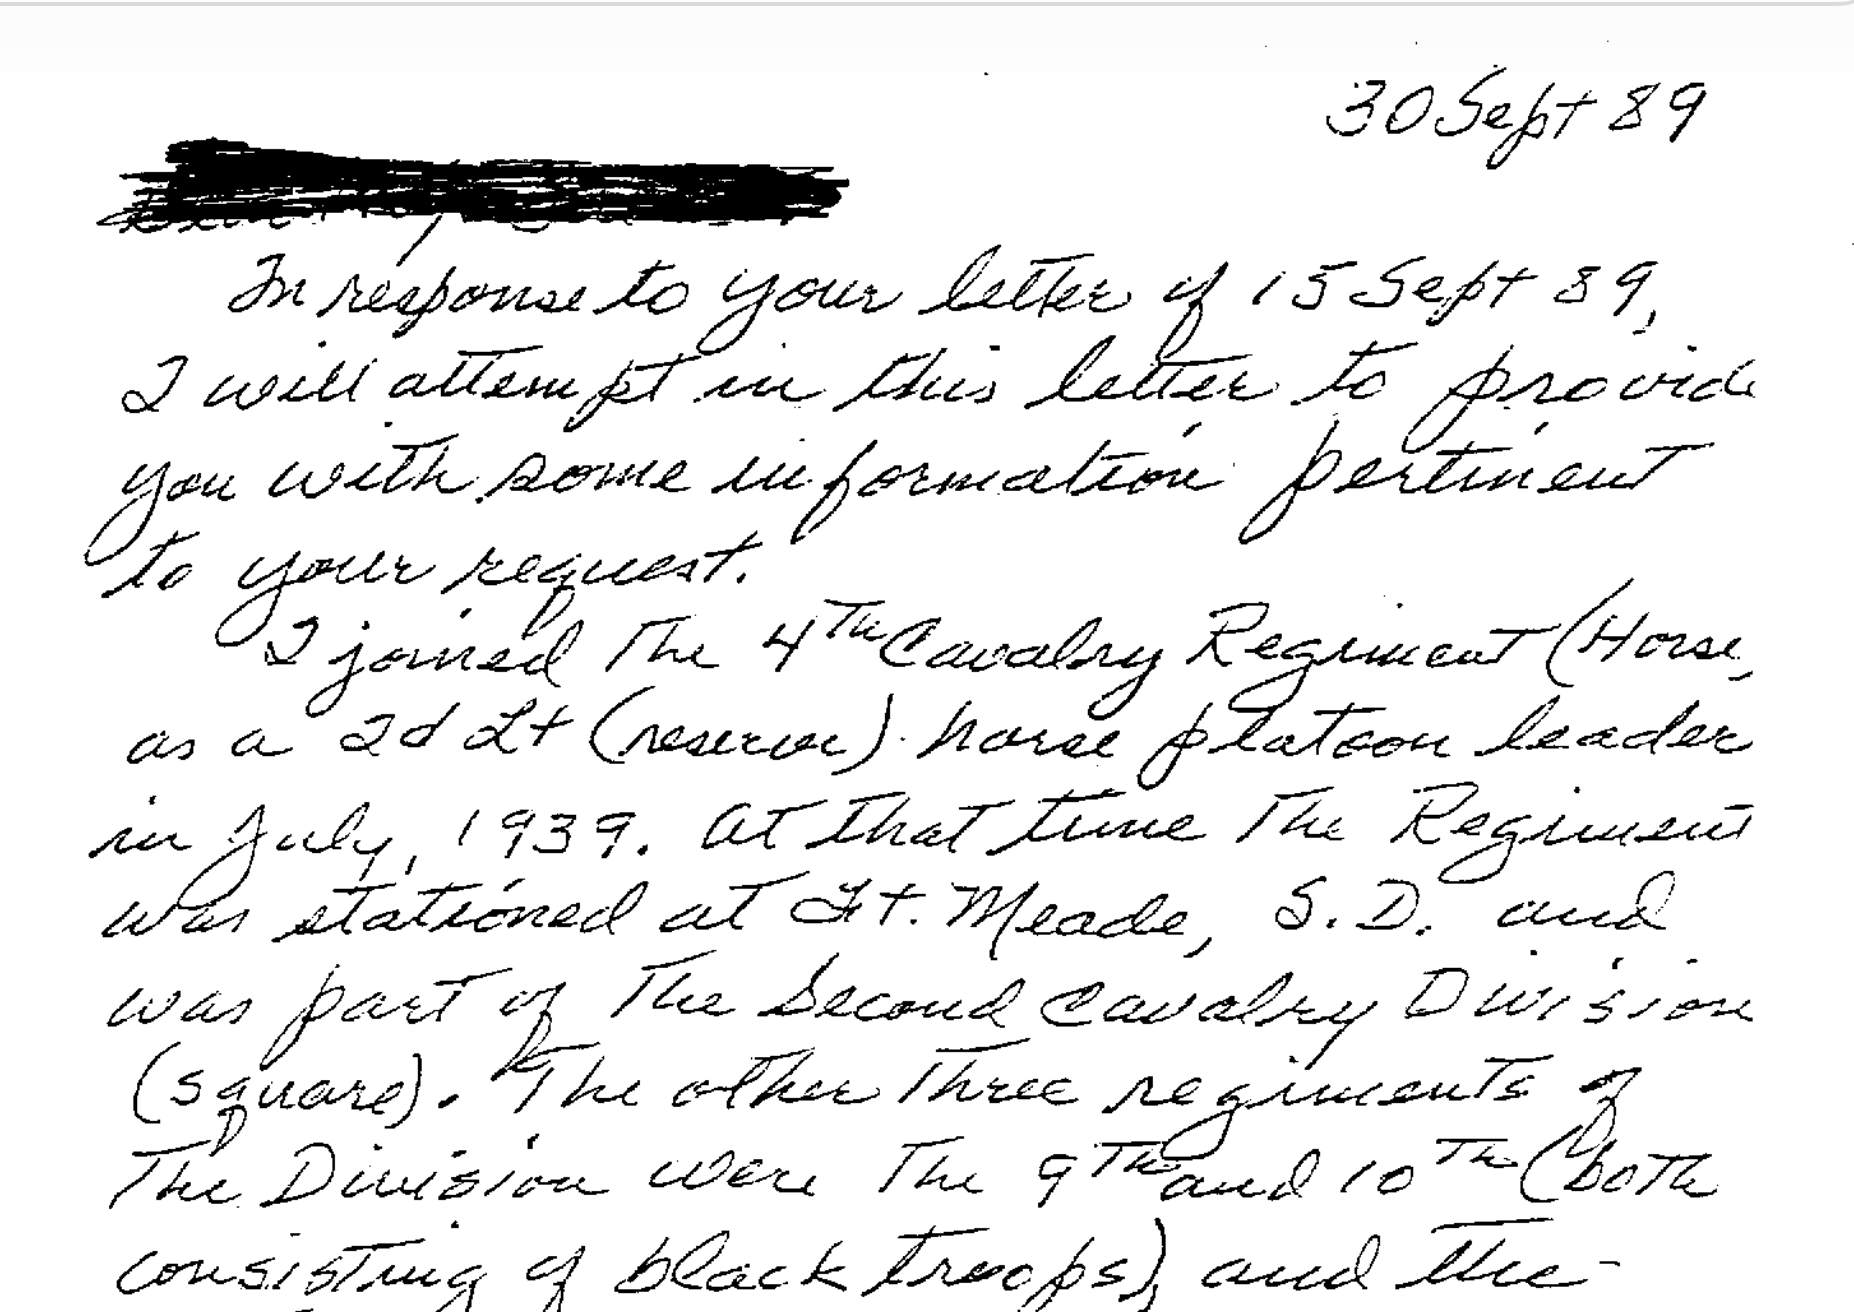 30 Sept 89
In response to your letter of 15 Sept 89,
I will attempt in this letter to provide
you with some information pertinent
to your request.
I joined the 4th Cavalry Regiment (Horse,
as a 2d Lt (reserve) horse platoon leader
in July, 1939. At that time the Regiment
was stationed at Ft. Meade, S.D. and
was part of the Second Cavalry Division
(square). The other three regiments of
the Division were the 9th and 10th (both
consisting of black troops), and the